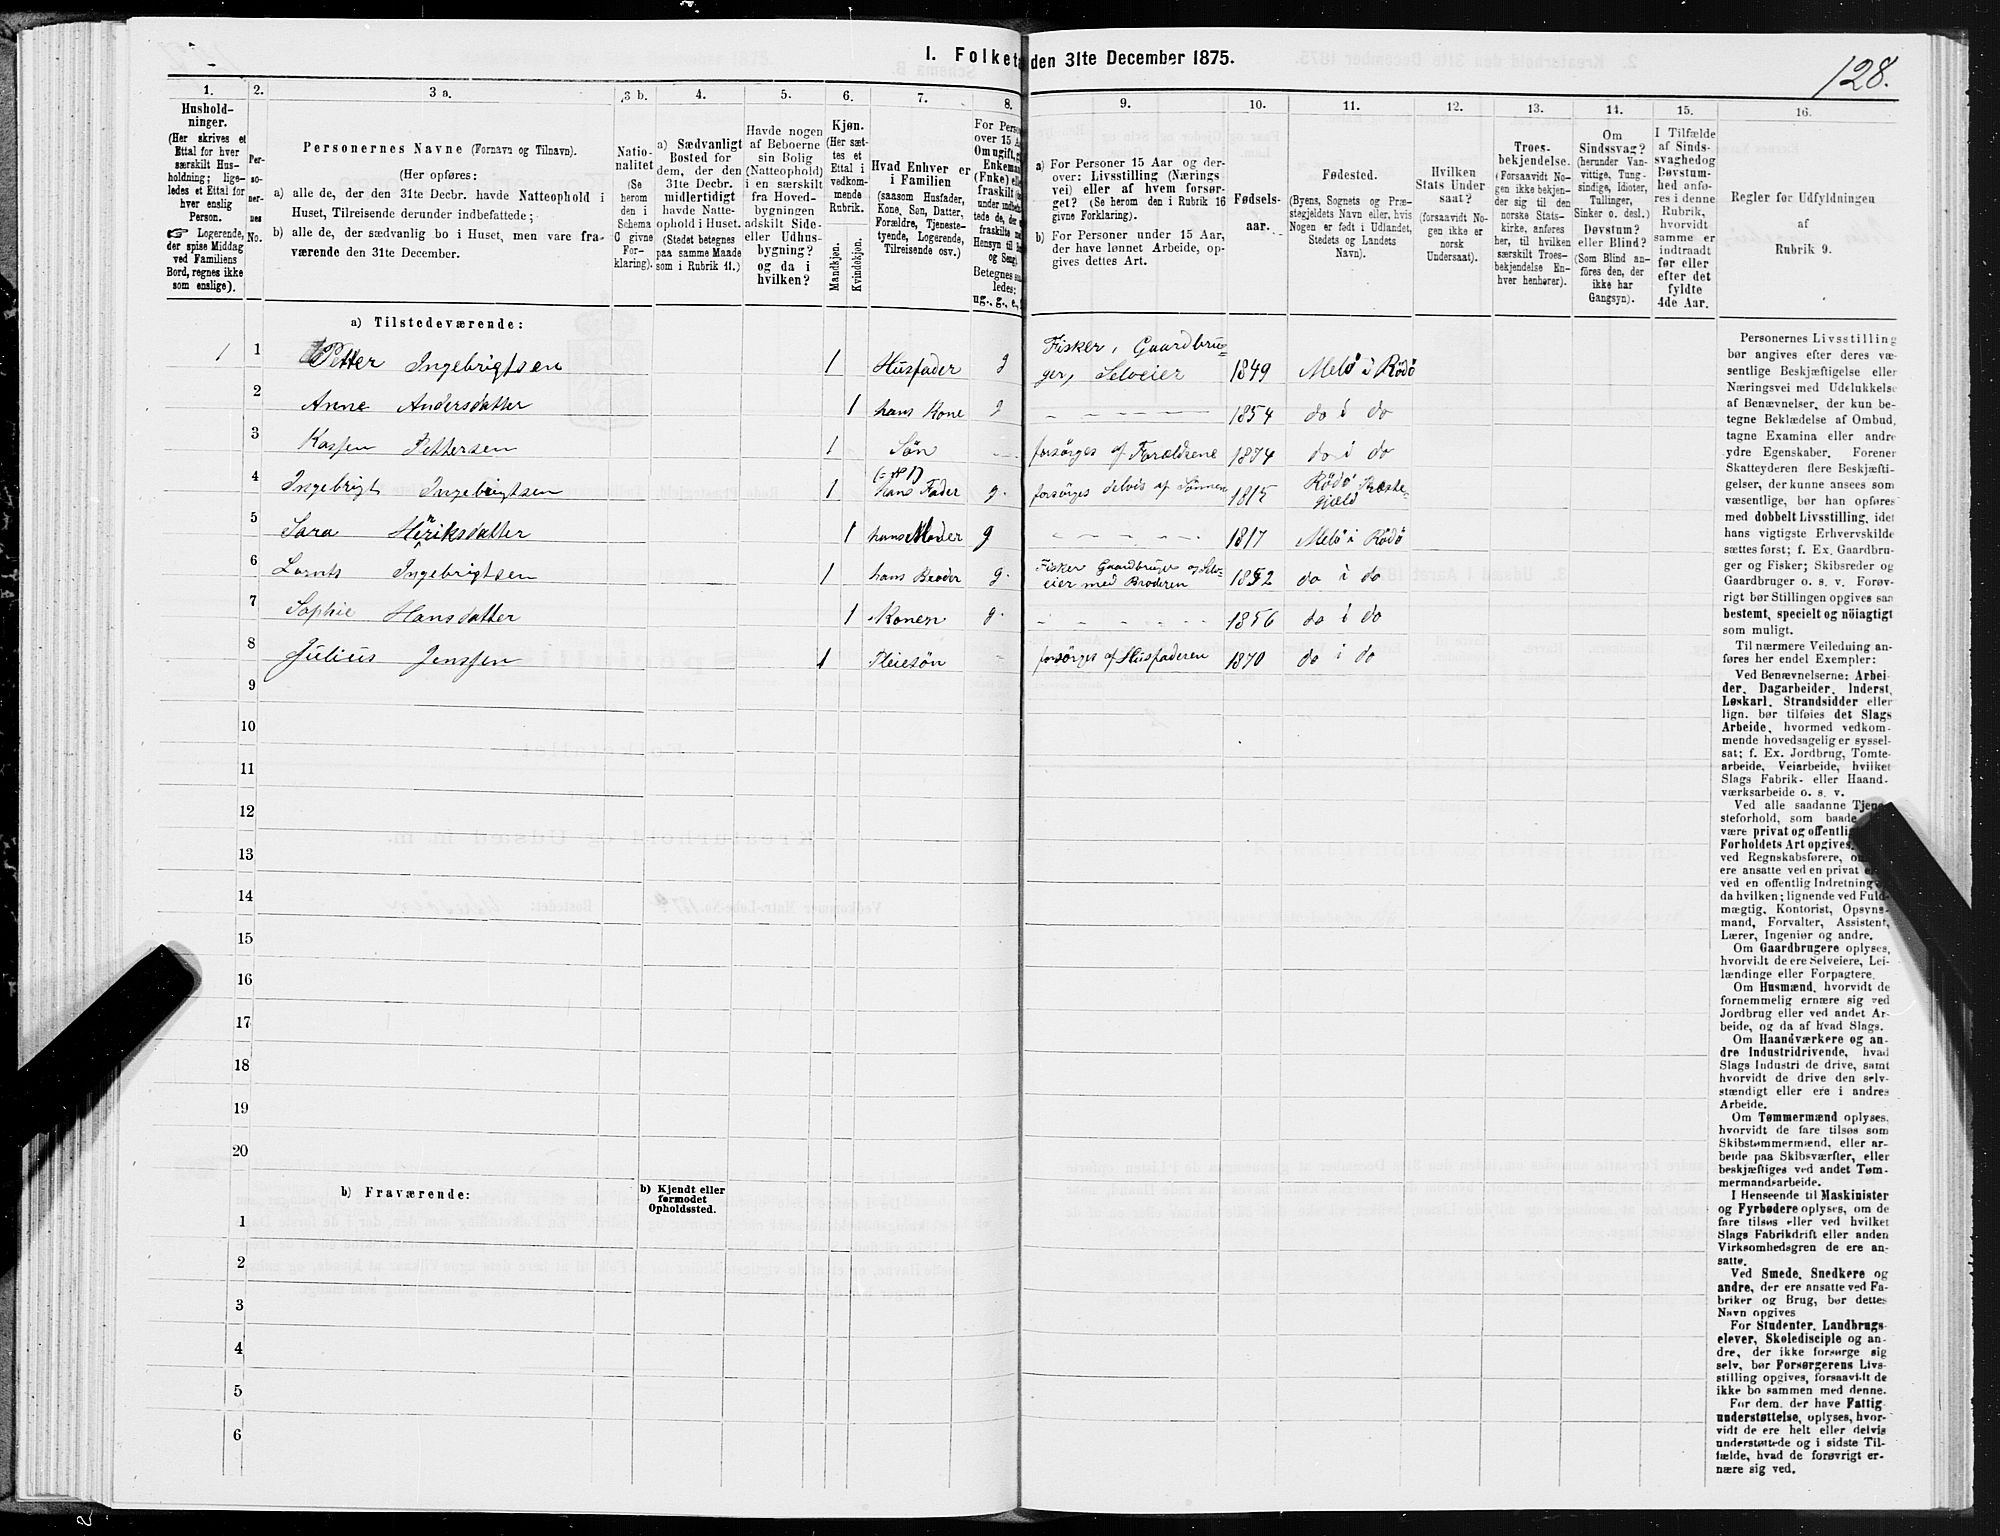 I. Folket
den 31te December 1875.
128.
1.
2.
3 a.
3 b.
4.
5.
6.
7.
8.
9.
10.
11.
12.
13.
14.
15.
16.
Hushold-
ninger.
(Her skrives et
Ettal for hver
særskilt Hus-
holdning; lige-
ledes et Ettal for
hver enslig
Person.
☞ Logerende,
der spise Middag
ved Familiens
Bord, regnes ikke
som enslige).
Per-
so-
ner-
nes
No.
Personernes Navne (Fornavn og Tilnavn).
(Her opføres:
a) alle de, der den 31te Decbr. havde Natteophold i
Huset, Tilreisende derunder indbefattede;
b) alle de, der sædvanlig bo i Huset, men vare fra-
værende den 31te December.
Natio-
nalitet
(Se
herom
den i
Schema
C givne
For-
klaring).
a) Sædvanligt
Bosted for
dem, der den
31te Decbr.
midlertidigt
havde Natte-
ophold i Huset.
(Stedet betegnes
paa samme Maade
som i Rubrik 11.)
Havde nogen
af Beboerne
sin Bolig
(Natteophold)
i en særskilt
fra Hoved-
bygningen
adskilt Side-
eller Udhus-
bygning?
og da i
hvilken?
Kjøn.
(Her sæt-
tes et
Ettal i
vedkom-
mende
Rubrik.
Mandkjøn.
Kvindekjøn.
Hvad Enhver er
i Familien
(saasom Husfader,
Kone, Søn, Datter,
Forældre, Tjeneste-
tyende, Logerende,
Tilreisende osv.)
For Perso
over 15 A
Om ugift, g
Enkema
(Enke) elle
fraskilt (s
under indbe
tede de, de
fraskilte m
Hensyn til B
og Seng).
Betegnes sa
ledes:
ug., g., e.,
a) For Personer 15 Aar og der-
over: Livsstilling (Nærings
vei) eller af hvem forsør-
get? (Se herom den i Rubrik 16
givne Forklaring).
b) For Personer under 15 Aar,
der have lønnet Arbeide, op-
gives dettes Art.
Fødsels-
aar.
Fødested.
(Byens, Sognets og Præ-
stegjeldets Navn eller, hvis
Nogen er født i Udlandet,
Stedets og Landets
Navn).
Hvilken
Stats Under
saat?
(forsaavidt No-
gen ikke er
norsk
Undersaat).
Troes-
bekjendelse.
(Forsaavidt No-
gen ikke bekjen-
der sig til den
norske Stats-
kirke, anføres
her, til hvilken
særskilt Troes-
bekjendelse En-
hver henhører).
Om
Sindssvag?
(herunder Van-
vittige, Tung-
sindige, Idioter,
Tullinger,
Sinker o. desl.)
Døvstum?
eller Blind?
(Som Blind an-
føres den, der
ikke har
Gangsyn).
I Tilfælde
af Sinds-
svaghed og
Døvstum-
hed anfø-
res i denne
Rubrik,
hvorvidt
samme er
indtraadt
før eller
efter det
fyldte
4de Aar.
Regler for Udfyldningen
af
Rubrik 9.
a) Tilstedeværende:
1 1 Petter Ingebrigtsen 1 Husfader g Fisker, Gaardbru-
ger, Selveier 1849 Melö i Rödö
2 Anne Andersdatter 1 hans Kone g - - - - - 1854 do i do
3 Kasper Pettersen 1 Sön - forsörges af Forældrene 1874 do i do
4 Ingebrigt Ingebrigtsen 1 hans Fader g. forsörges delvis af Sönnen 1815 Rödö Præste-
Gjæld
5 Sara Henriksdatter 1 hans Moder g - - - - 1817 Melö i Rödö
6 Lornts Ingebrigtsen 1 hans Broder g. Fisker Gaardbruger og Selv-
eier med Broderen 1852 do i do
7 Sophie Hansdatter 1 Konen g. - - - - - 1856 do i do
8 Julius Jenssen 1 Pleiesön - forsörges af Husfaderen 1870 do i do
9
10
11
12
13
14
15
16
17
18
19
20
b) Fraværende:
b) Kjendt eller
formodet
Opholdssted.
1
2
3
4
5
6
Personernes Livsstilling
bør angives efter deres væ-
sentlige Beskjæftigelse eller
Næringsvei med Udelukkelse
af Benævnelser, der kun be-
tegne Beklædelse af Ombud,
tagne Examina eller andre
ydre Egenskaber. Forener
Skatteyderen flere Beskjæfti-
gelser, der kunne ansees som
væsentlige, bør han opføres
med dobbelt Livsstilling, idet
hans vigtigste Erhvervskilde
sættes først; f. Ex. Gaardbru-
ger og Fisker; Skibsreder og
Gaardbruger o. s. v. Forøv-
rigt bør Stillingen opgives saa
bestemt, specielt og nöiagtigt
som muligt.
Til nærmere Veiledning an-
føres her endel Exempler:
Ved Benævnelserne: Arbei-
der, Dagarbeider, Inderst,
Løskarl, Strandsidder eller
lign. bør tilføies det Slags
Arbeide, hvormed vedkom-
mende hovedsagelig er syssel-
sat; f. Ex. Jordbrug, Tomte-
arbeide, Veiarbeide, hvilket
Slags Fabrik- eller Haand-
værksarbeide o. s. v.
Ved alle saadanne Tjene-
steforhold, som baade
være privat og offentlig
Forholdets Art opgives,
ved Regnskabsførere, o
ere ansatte ved en privat e
ved en offentlig Indretning
da hvilken; lignende ved Fuld-
mægtig, Kontorist, Opsyns-
mand, Forvalter, Assistent,
Lærer, Ingeniør og andre.
Om Gaardbrugere oplyses,
hvorvidt de ere Selveiere, Lei-
lændinge eller Forpagtere.
Om Husmænd, hvorvidt de
fornemmelig ernære sig ved
Jordbrug eller ved andet Ar-
beide, og da af hvad Slags.
Om Haandværkere og an-
dre Industridrivende, hvad
Slags Industri de drive, samt
hvorvidt de drive den selv-
stændigt eller ere i andres
Arbeide.
Om Tømmermænd oplyses,
hvorvidt de fare tilsøs som
Skibstømmermænd, eller ar-
beide paa Skibsværfter, eller
beskjæftiges ved andet Tøm-
mermandsarbeide.
I Henseende til Maskinister
og Fyrbødere oplyses, om de
fare tilsøs eller ved hvilket
Slags Fabrikdrift eller anden
Virksomhedsgren de ere an-
satte.
Ved Smede, Snedkere og
andre, der ere ansatte ved Fa-
briker og Brug, bør dettes
Navn opgives
For Studenter, Landbrugs-
elever, Skoledisciple og an-
dre, der ikke forsørge sig
selv, bør Forsørgerens Livs-
stilling opgives, forsaavidt de
ikke bo sammen med denne.
For dem, der have Fattig-
understøttelse, oplyses, hvor-
vidt de ere helt eller delvis
understøttede og i sidste Til-
fælde, hvad de forøvrigt er-
nære sig ved.